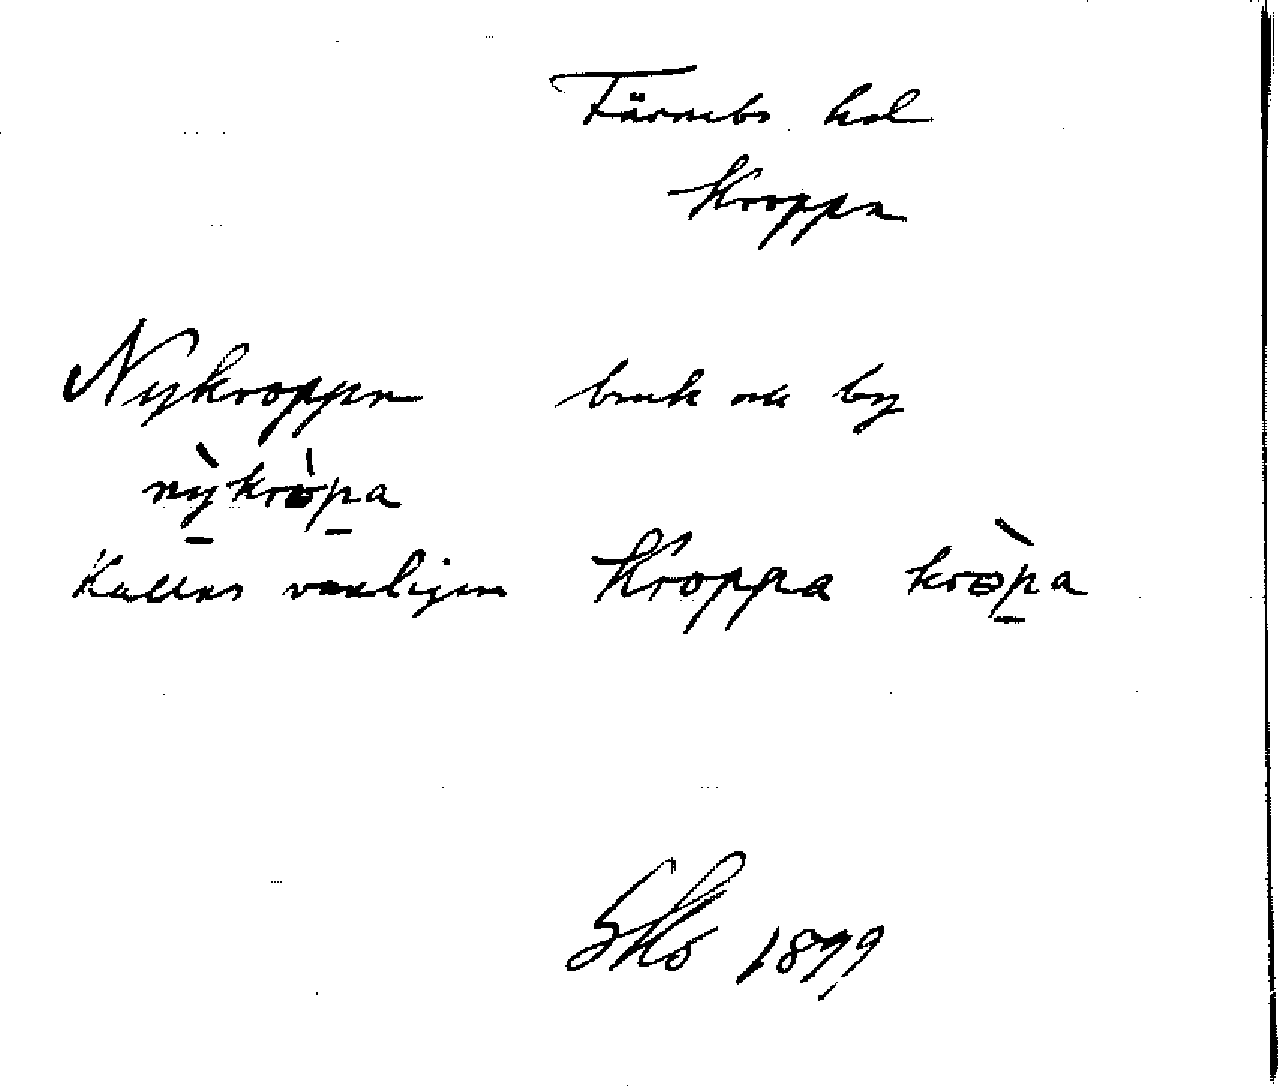 Färnebo hd
Kroppa
Nykroppa bruk och by
nỳkròpa
Kallas vanligen Kroppa kròpa
1899